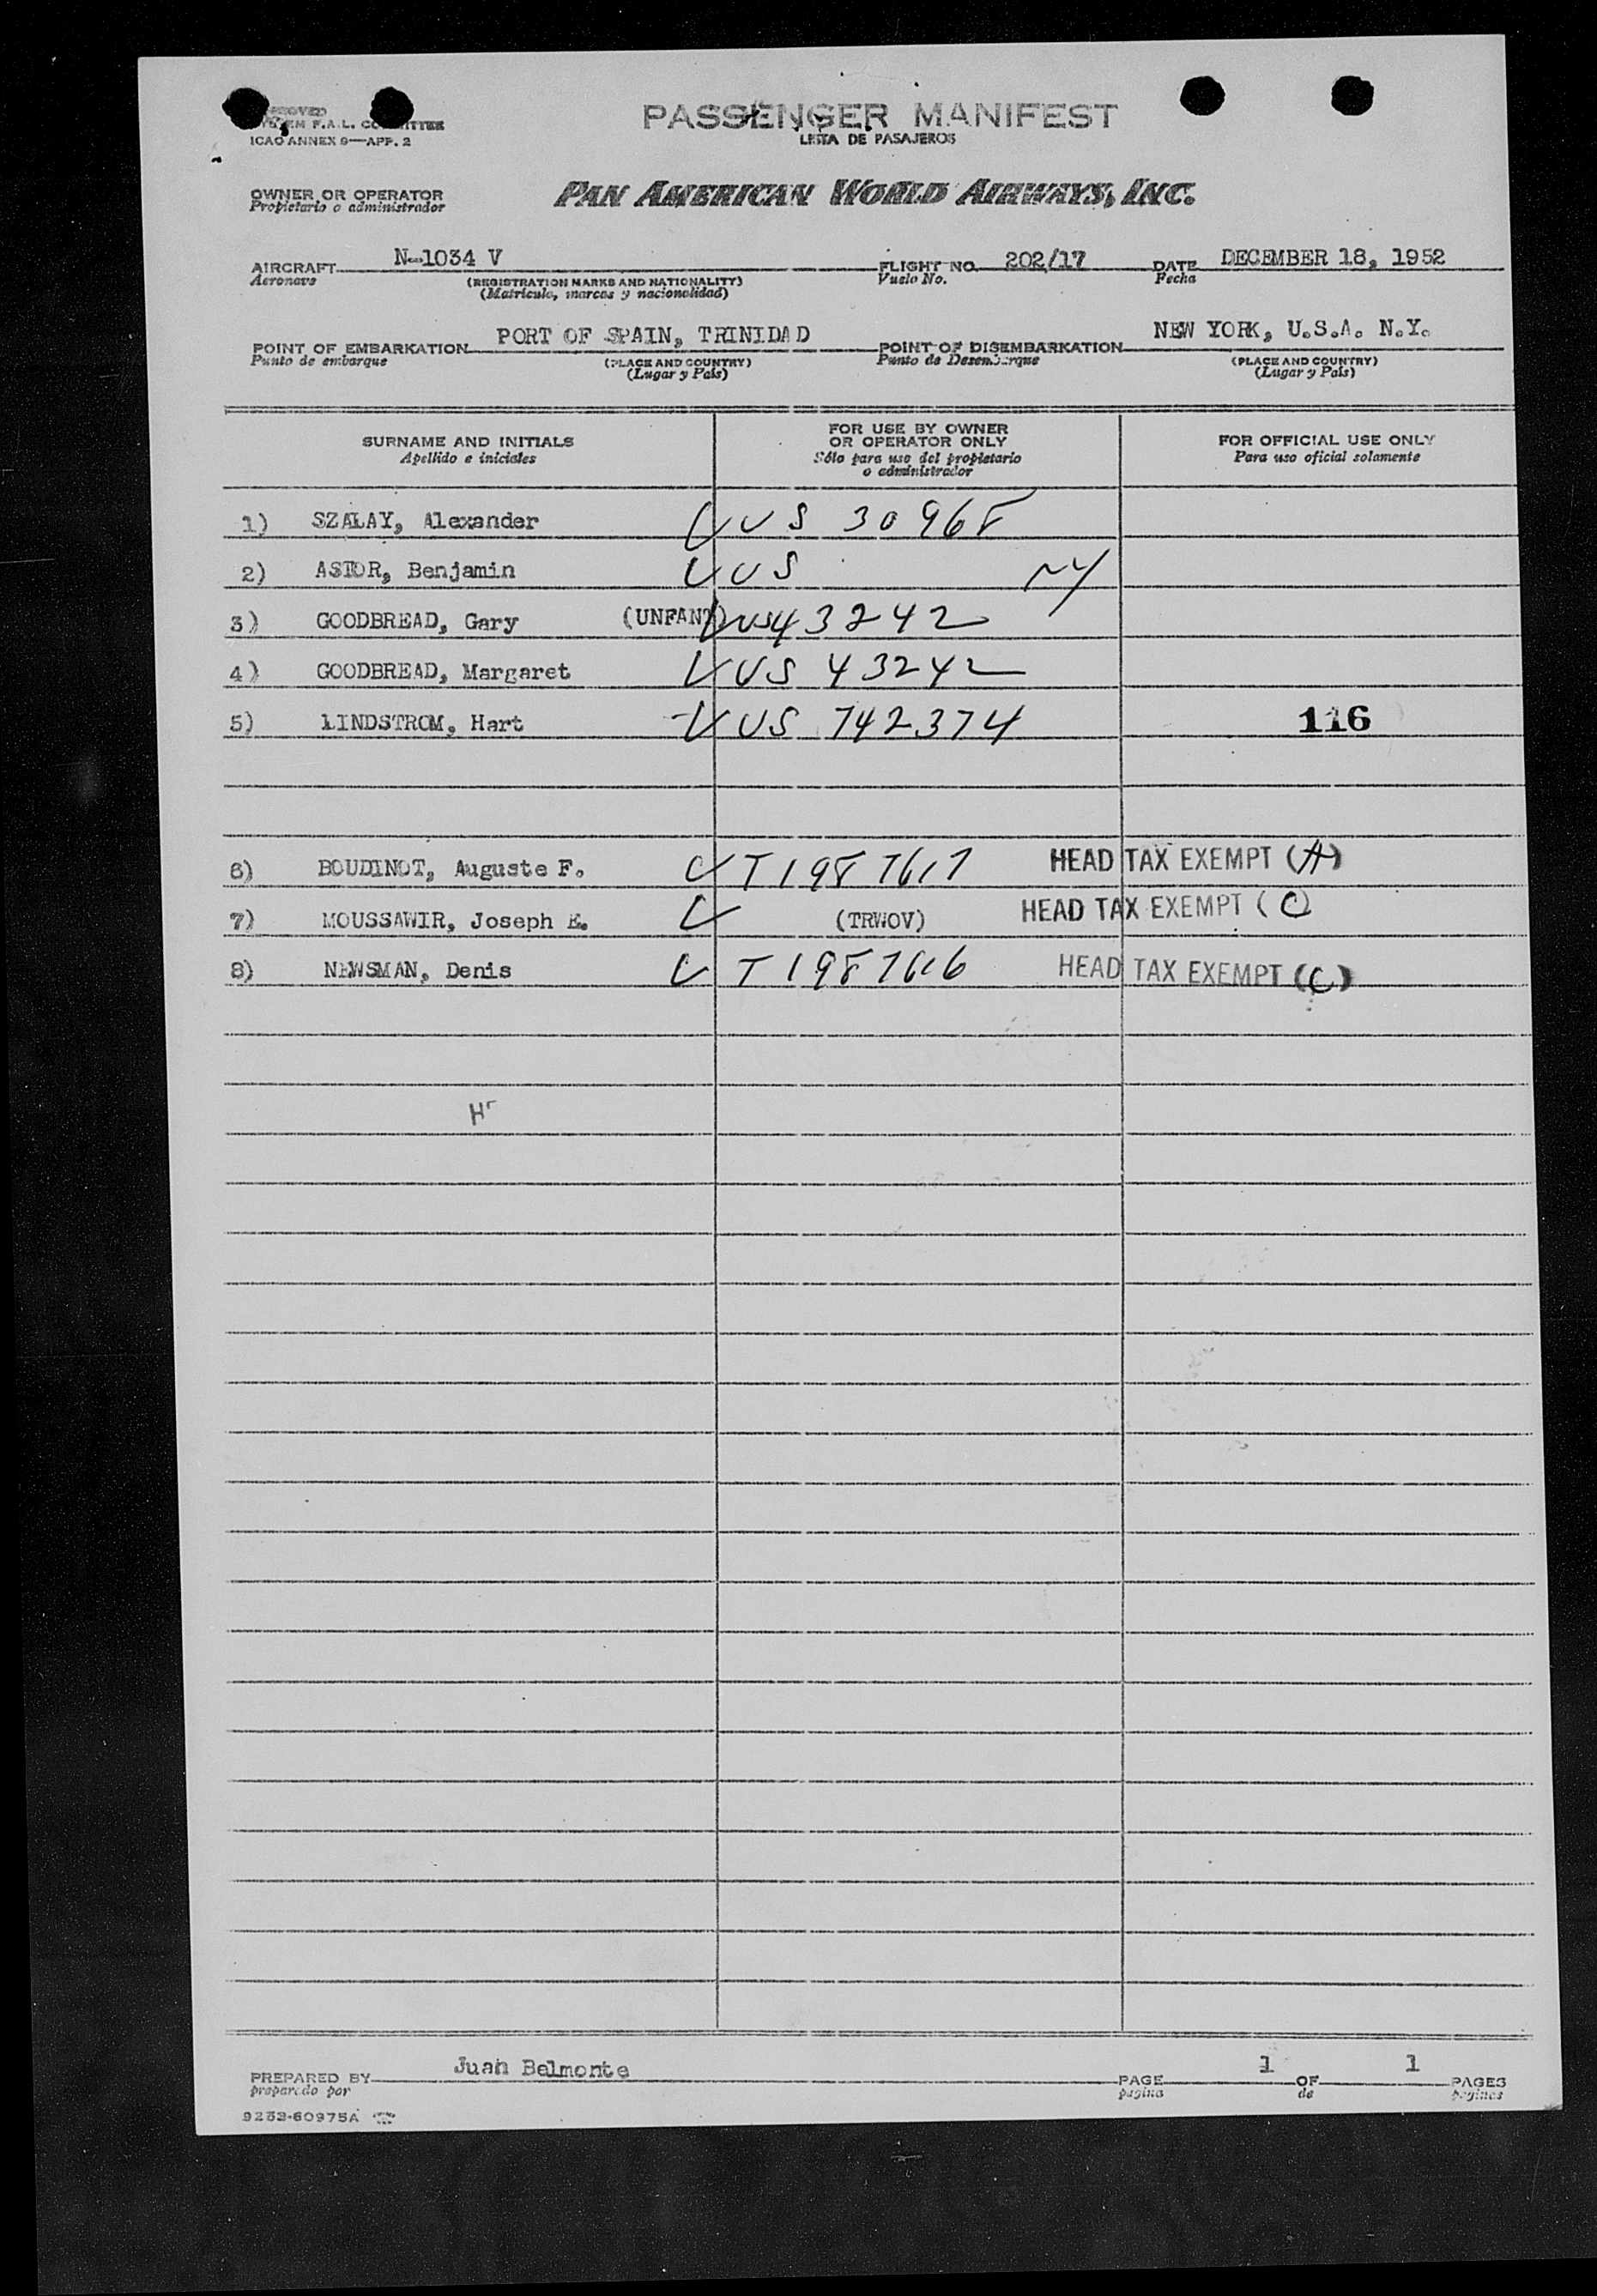 PASSENGER MANIFEST
LISTA DE PASAJEROS
ICAO ANNEX 9—APP. 2
OWNER OR OPERATOR
Propietario o administrador
PAN AMERICAN WORLD AIRWAYS, INC.
AIRCRAFT N-1034 V FLIGHT NO. 202/17 DATE DECEMBER 18, 1952
Aeronave (REGISTRATION MARKS AND NATIONALITY) Vuelo No. Fecha
(Matricula, marcas y nacionalidad)
POINT OF EMBARKATION PORT OF SPAIN, TRINIDAD POINT OF DISEMBARKATION NEW YORK, U.S.A. N.Y.
Punto de embarque (PLACE AND COUNTRY) Punto de Desembarque (PLACE AND COUNTRY)
(Lugar y País) (Lugar y País)
SURNAME AND INITIALS
Apellido e iniciales
FOR USE BY OWNER
OR OPERATOR ONLY
Sólo para uso del propietario
o administrador
FOR OFFICIAL USE ONLY
Para uso oficial solamente
1) SZALAY, Alexander US 30968
2) ASTOR, Benjamin US NY
3) GOODBREAD, Gary (UNFANT) US 43242
4) GOODBREAD, Margaret US 43242
5) LINDSTROM, Hart US 742374 116
6) BOUDINOT, Auguste F. T1987617 HEAD TAX EXEMPT (A)
7) MOUSSAWIR, Joseph E. (TRWOV) HEAD TAX EXEMPT (C)
8) NEWSMAN, Denis T1987616 HEAD TAX EXEMPT (C)
PREPARED BY Juan Belmonte PAGE 1 OF 1 PAGES
preparado por pagina de paginas
9232-60975A